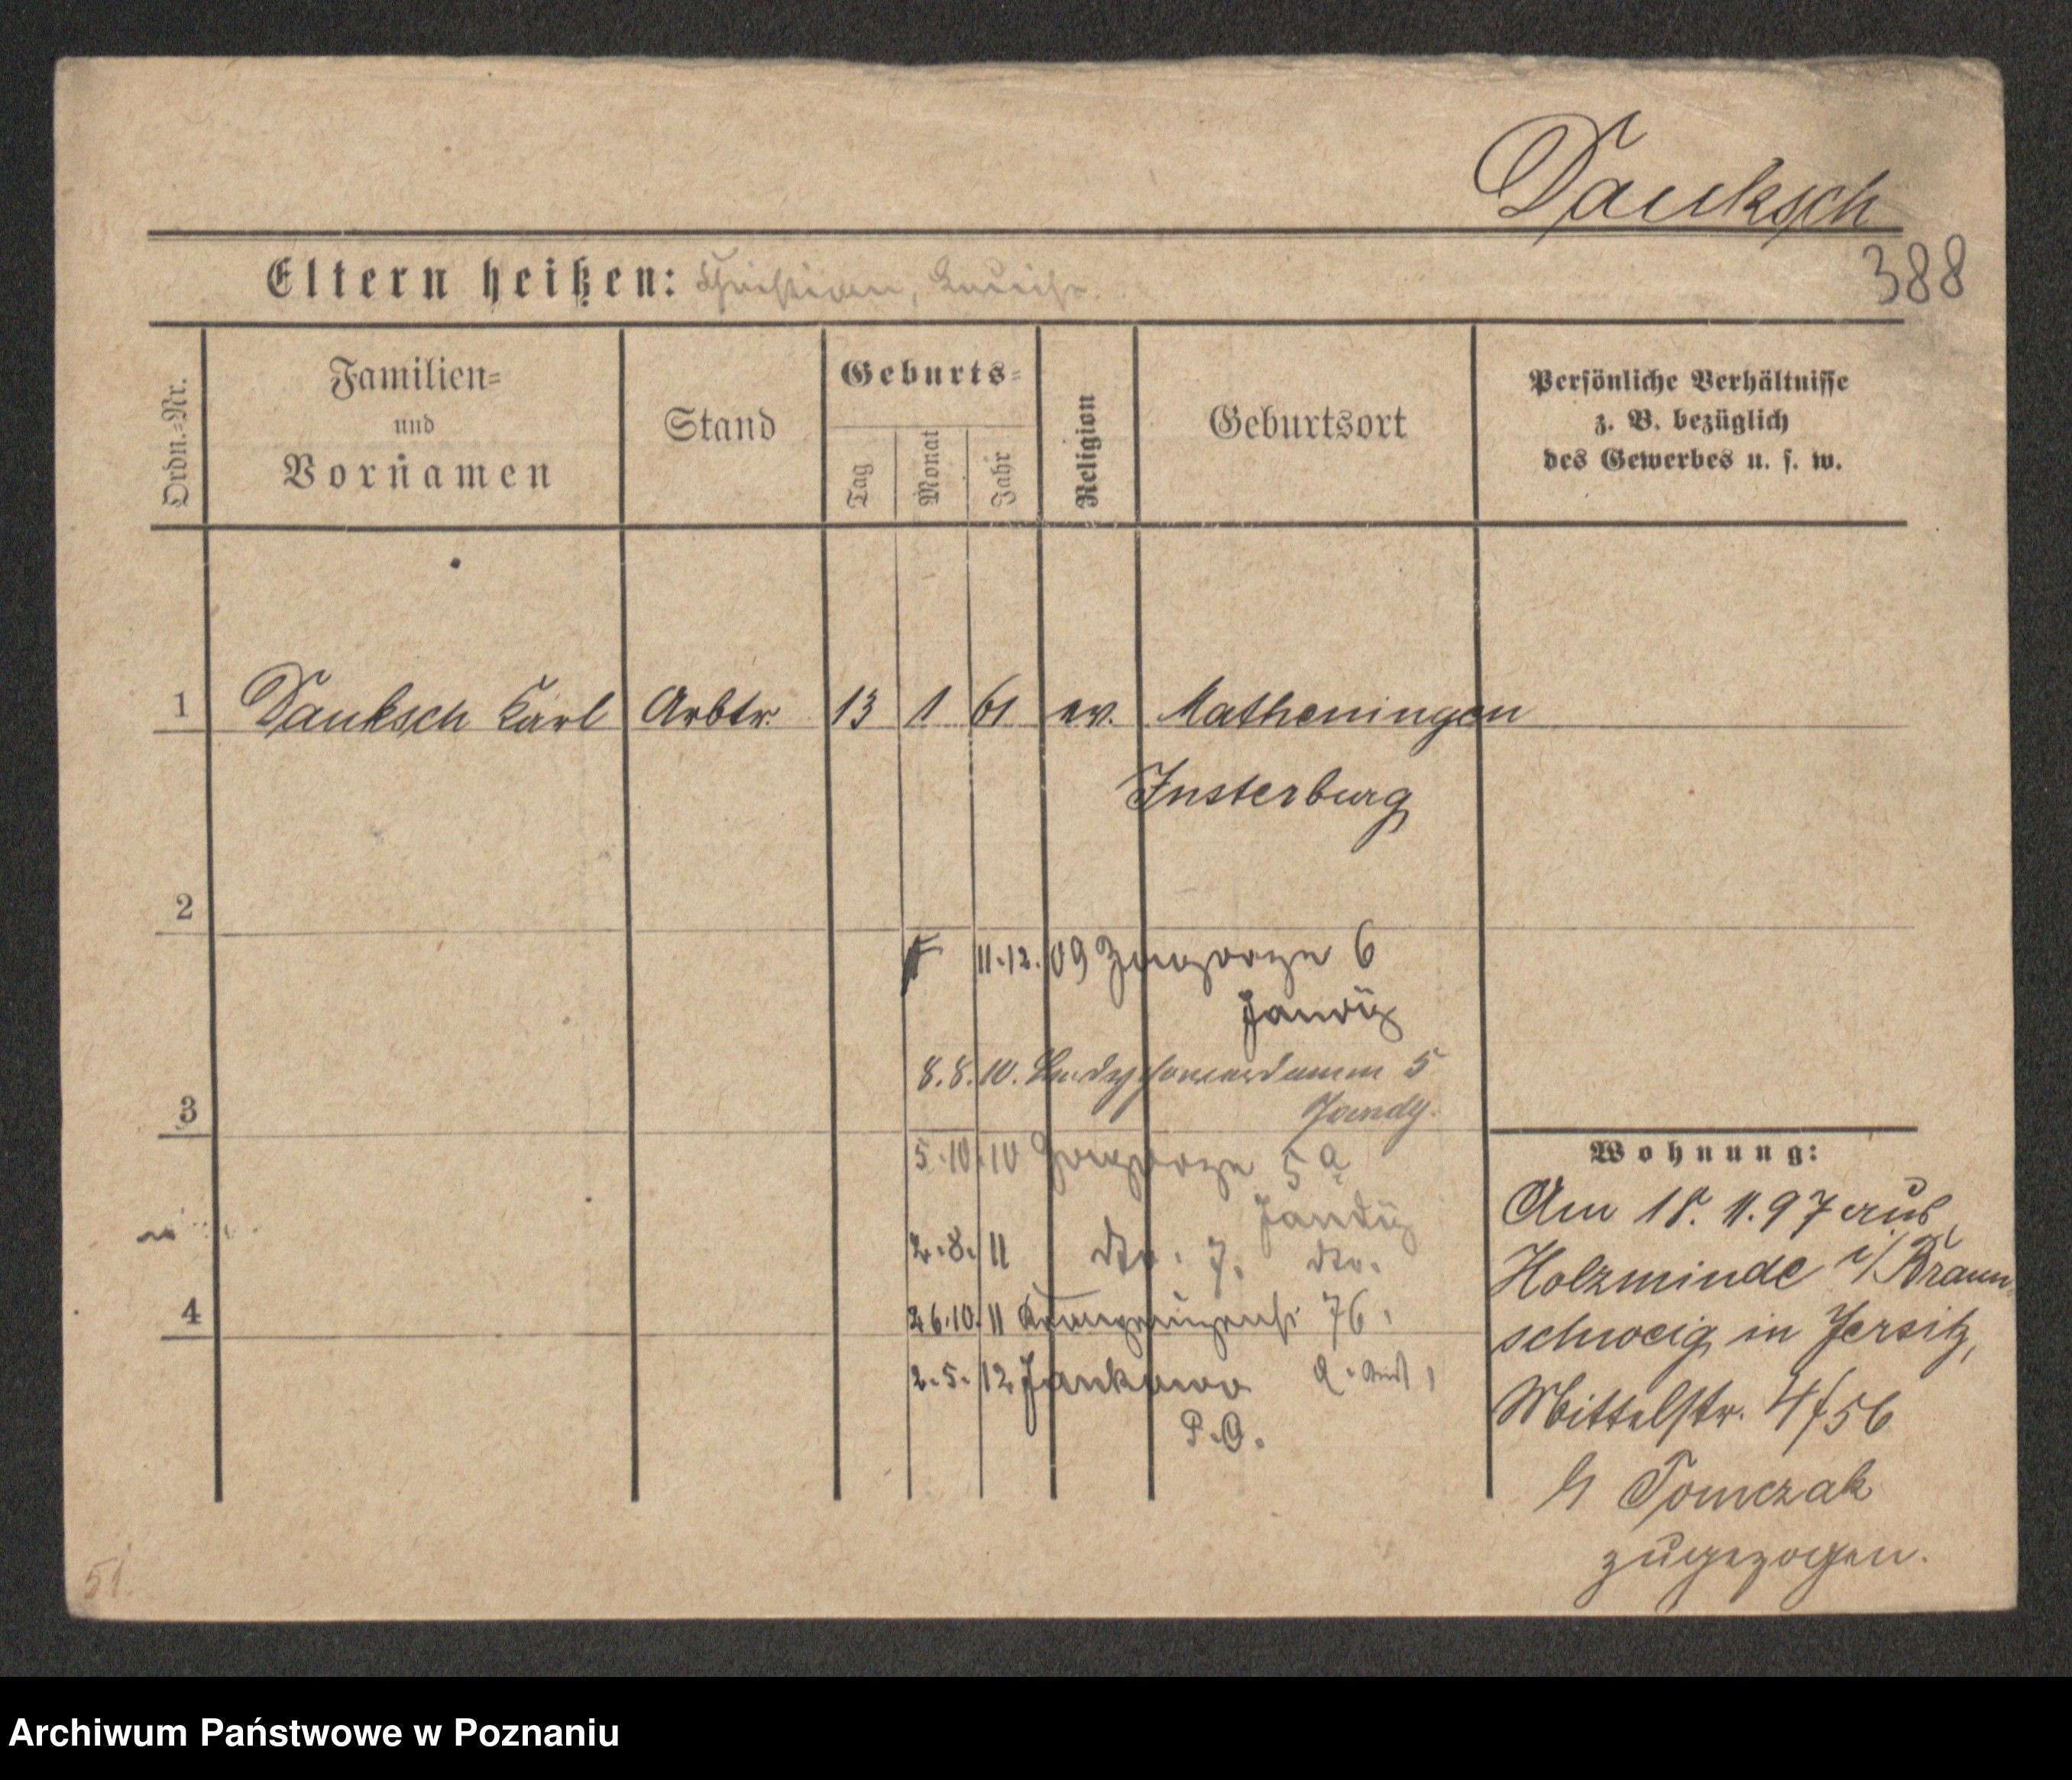 Dauksch
Eltern heißen: Christian, Louise.
388
Ordn.=Nr.
Familien=
und
Vornamen
Stand
Geburts=
Tag
Monat
Jahr
Religion
Geburtsort
Persönliche Verhältnisse
z. B. bezüglich
des Gewerbes u. s. w.
1 Dauksch Karl Arbtr. 13 1 61 ev. Matheningen
Insterburg
2
11.12.09 Zagorze 6
8.8.10. 5
3
5.10.10 Zagorze 5a
2.8.11 dto. 7. dto.
4
26.10.11 76.
2.5.12 Jankowo
P.O.
Wohnung:
Am 18. 11. 97 aus
Holzminde i/Braun
schweig in Jersitz,
Mittelstr. 4/56
Tomczak
zugezogen.
51.
Archiwum Państwowe w Poznaniu